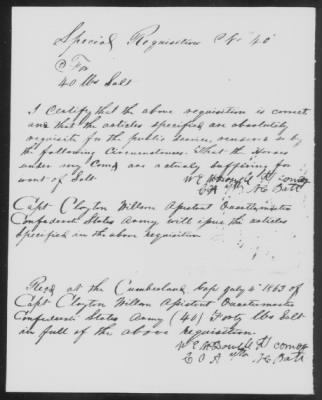 Special Requisition No 40
For
40 lbs Salt
I certify that the above requisition is correct
and that the articles specified are absolutely
requisite for the public service, rendered so by
the following circumstances: That the Horses
under my Comd are actually suffering for
want of Salt.
W E McDowell Lt comdg
Co A NC Batt
Capt Clayton Wilson Assistant Quartermaster
Confederate States Army will issue the articles
specified in the above requisition
Recd at the Cumberland Gap July 6 1863 of
Capt Clayton Wilson Assistant Quartermaster
Confederate States Army (40) Forty lbs Salt
in full of the above requisition.
W E McDowell Lt comdg
Co A NC Batt